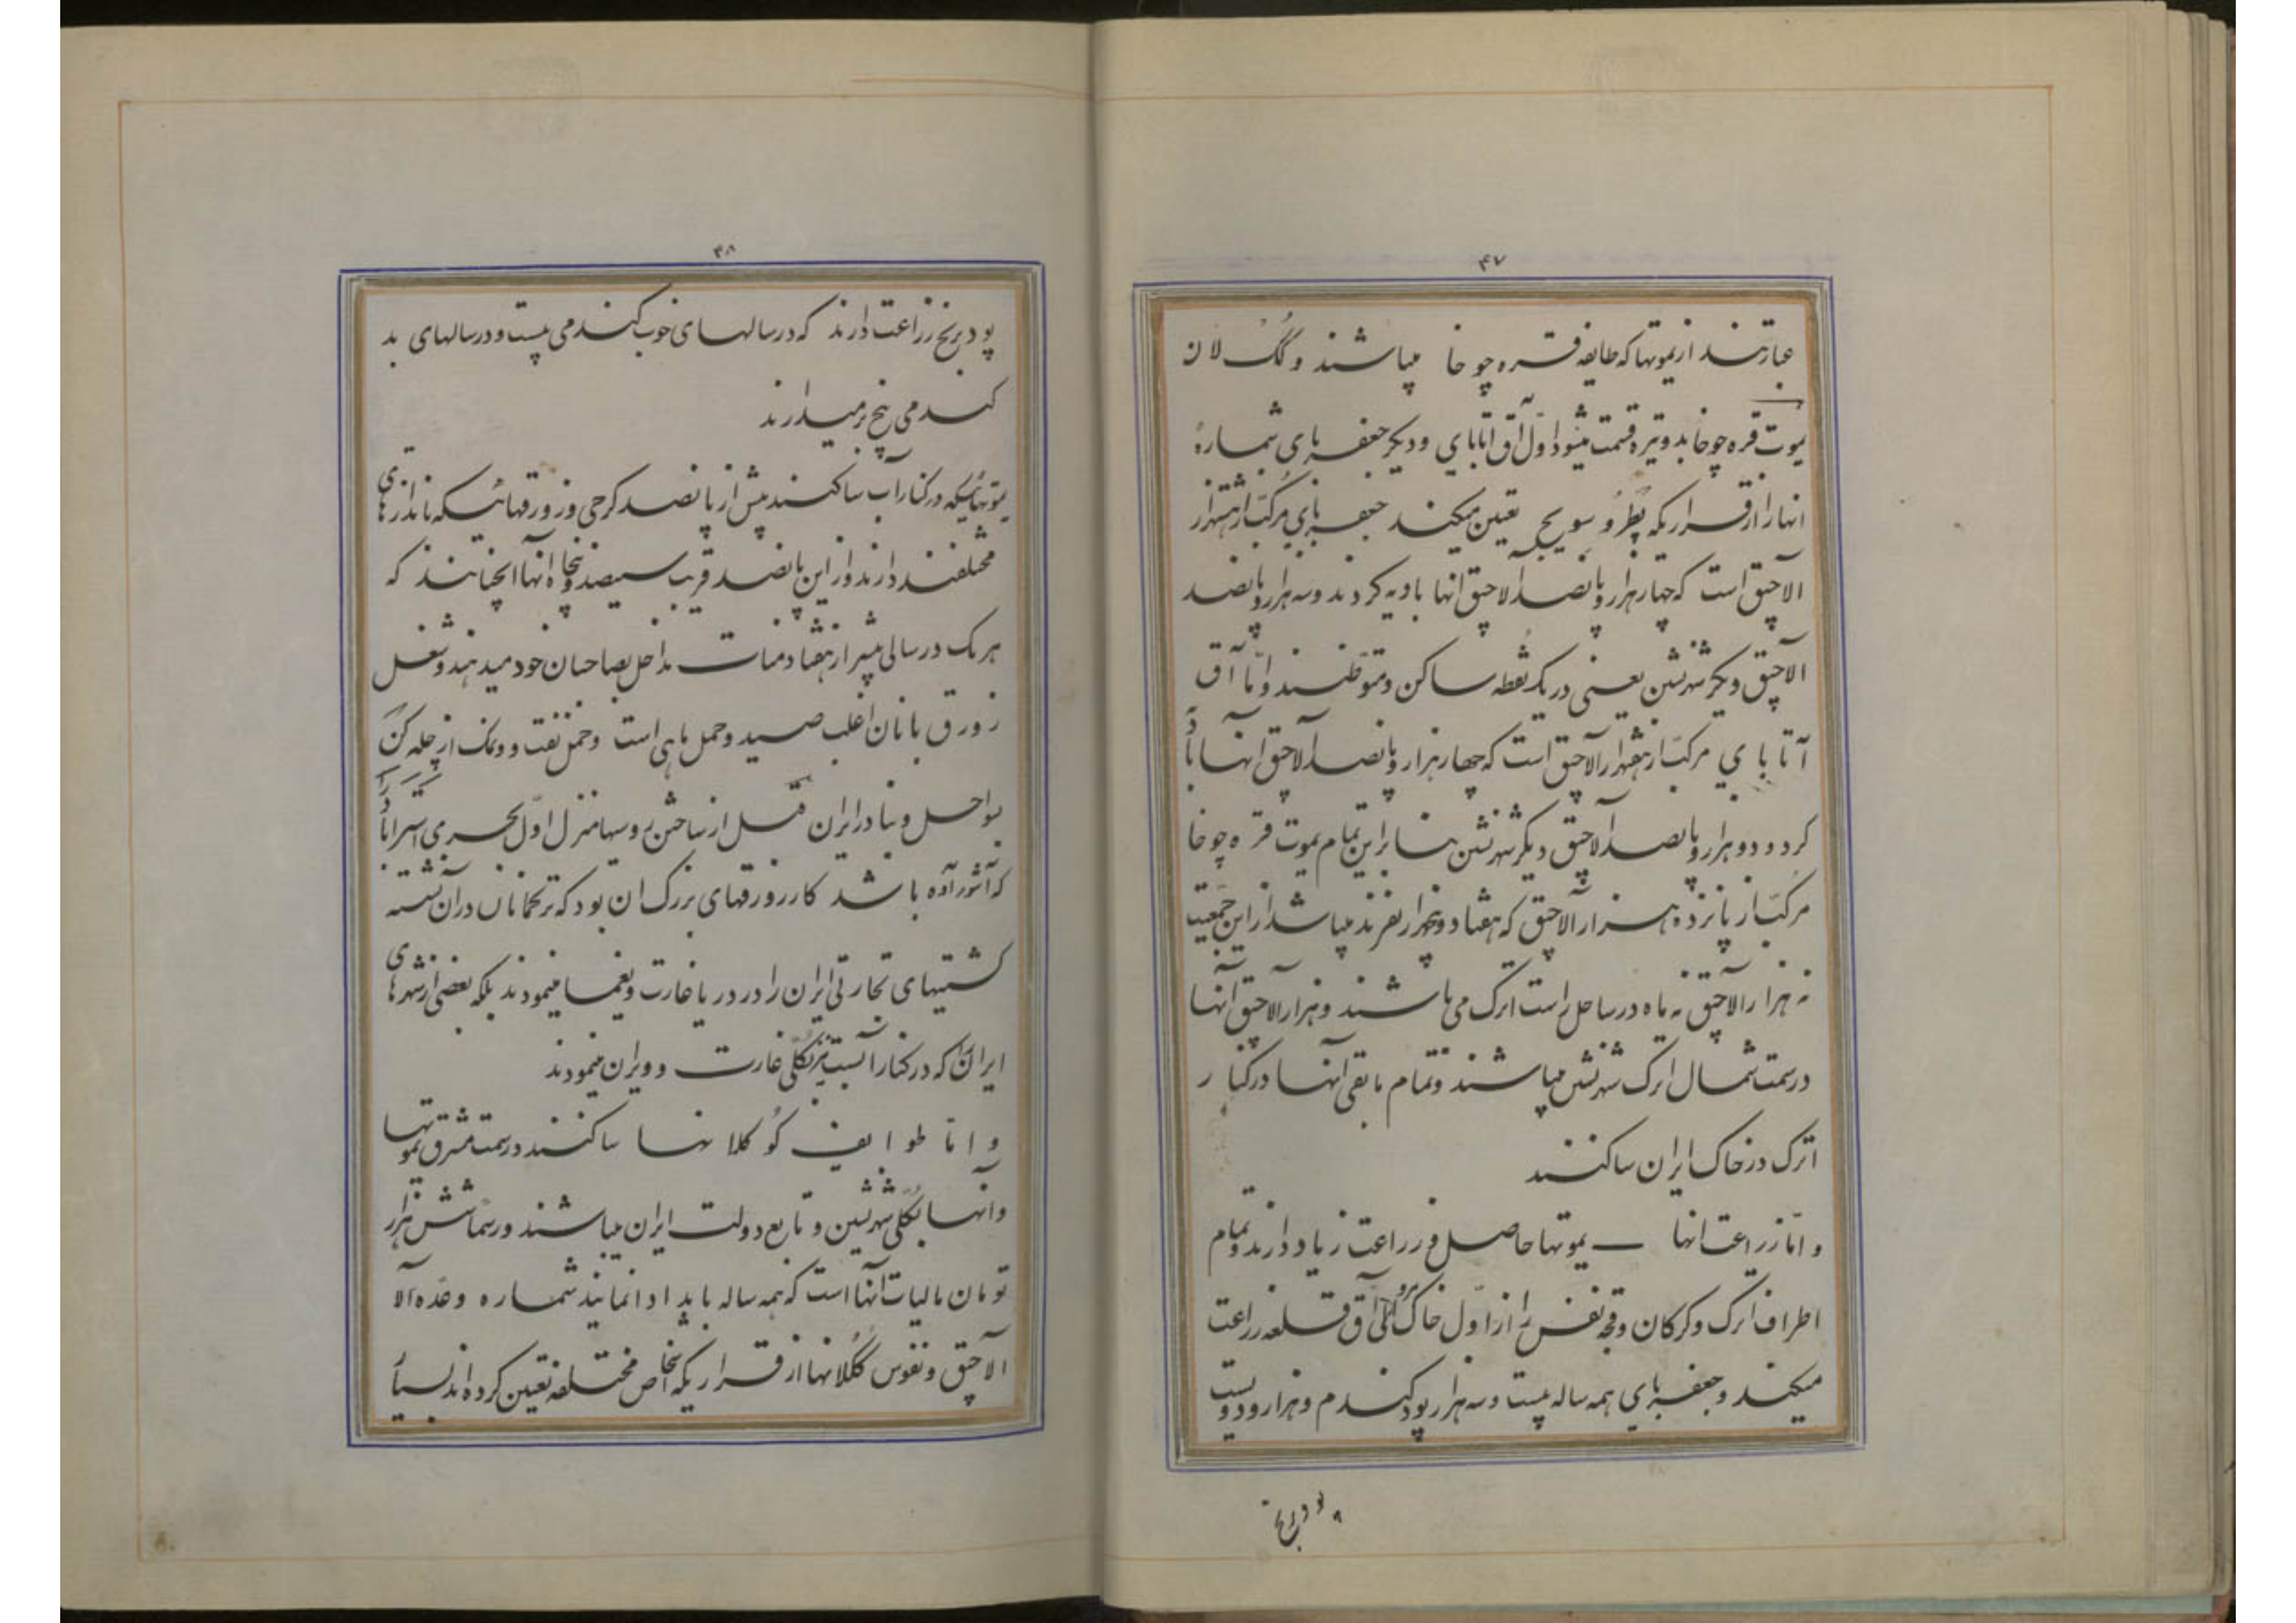 ۴۷
عبارتند از یموتها که طایفه قره چوخا میباشند و گگ لان
یموت قره چوخا بدو تیره قسمت میشود اول آق اتابای و دیگر جعفربای شمارهٔ
انها را از قراریکه پطرو سویج تعیین میکند جعفربای مرکب از هشتهزار
الاچیق است که چهار هزار و پانصد الاچیق انها بادیه کردند و سه هزار و پانصد
الاچیق دیگر شهرنشین یعنی در یک نقطه ساکن و متوطنند و اما آق
آتابای مرکب از هفتهزار الاچیق است که چهار هزار و پانصد آلاچیق انها باد
کرد و دو هزار و پانصد آلاچیق دیگر شهرنشین بنابراین تمام یموت قره چوخا
مرکب از پانزده هزار آلاچیق که هفتاد و پنجهزار نفرند میباشد از این جمعیت
نه هزار آلاچیق نه ماه در ساحل راست اترک می باشند و هزار آلاچیق آنها
در سمت شمال اترک شهرنشین میباشند و تمام مابقی آنها در کنار
اترک در خاک ایران ساکنند
و اما زراعت انها یموتها حاصل و زراعت زیاد دارند و تمام
اطراف اترک و کرکان و قجه نفس را از اول خاک الی آق قلعه زراعت
میکنند و جعفربای همه ساله بیست و سه هزار پود کندم و هزار و دویست
پود برنج
۴۸
پود برنج زراعت دارند که در سالهای خوب کندمی بیست و در سالهای بد
کندمی پنج بر میدارند
یموتهائیکه در کنار آب ساکنند بیش از پانصد کرجی و زورقهائیکه باندازهای
مختلفند دارند و از این پانصد قریب سیصد و پنجاه آنها انچنانند که
هر یک در سالی بیشتر از هفتاد منات مداخل بصاحبان خود میدهند و شغل
زورق بانان اغلب صید و حمل ماهی است و حمل نفت و نمک از چله کن
بسواحل و بنادر ایران قبل از ساختن روسها منزل اول بحری استراباد را
که آشوراده باشد کار زورقهای بزرک ان بود که ترکمانان در آن نشسته
کشتیهای تجارتی ایران را در دریا غارت و یغما مینمودند بلکه بعضی از شهرهای
ایران که در کنار آبست نیز بکلی غارت و ویران مینمودند
و اما طوایف کوکلانها ساکنند در سمت مشرق یموتها
و آنها بکلی شهرنشین و تابع دولت ایران میباشند و رسما شش هزار
تومان مالیات آنها است که همه ساله باید ادا نمایند شماره و عده آلا
الاچیق و نفوس ککلانها از قراریکه اشخاص مختلفه تعیین کرده اند بسیار